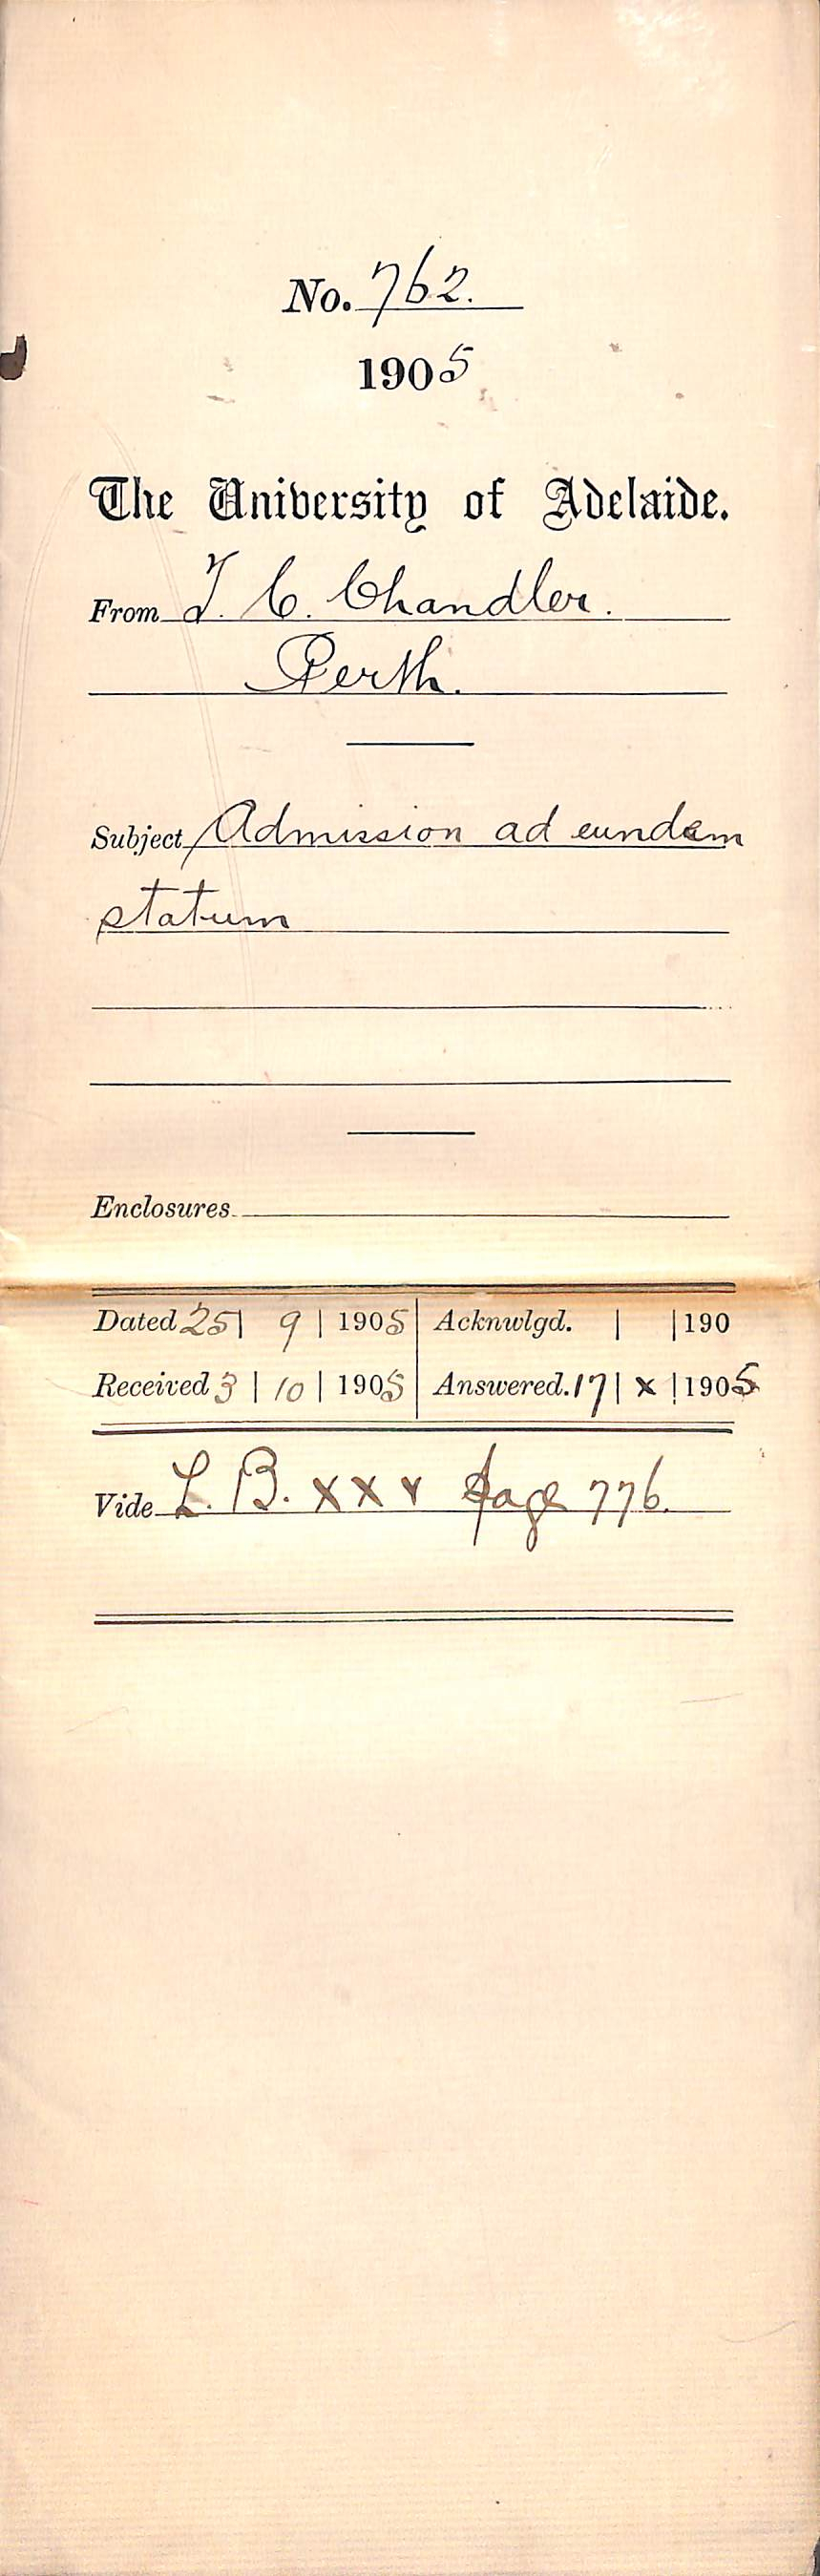 No. 762.
1905
The University of Adelaide.
From T. C. Chandler.
Perth.
Subject Admission ad eundem
statum
Enclosures
Dated 25 | 9 | 1905 | Acknwlgd. | | 190
Received 3 | 10 | 1905 | Answered. 17 | x | 1905
Vide L. B. xxv page 776.